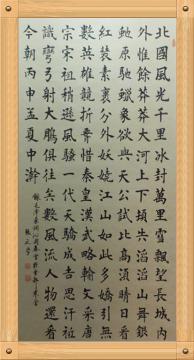 北國風光千里冰封萬里雪飄望長城內
外惟餘莽莽大河上下頓失滔滔山舞銀
蛇原馳蠟象欲與天公試比高須晴日看
紅裝素裹分外妖嬈江山如此多嬌引無
數英雄競折腰惜秦皇漢武略輸文采唐
宗宋祖稍遜風騷一代天驕成吉思汗祗
識彎弓射大鵰俱往矣數風流人物還看
今朝丙申孟夏中澣
錄毛澤東詞沁園春雪